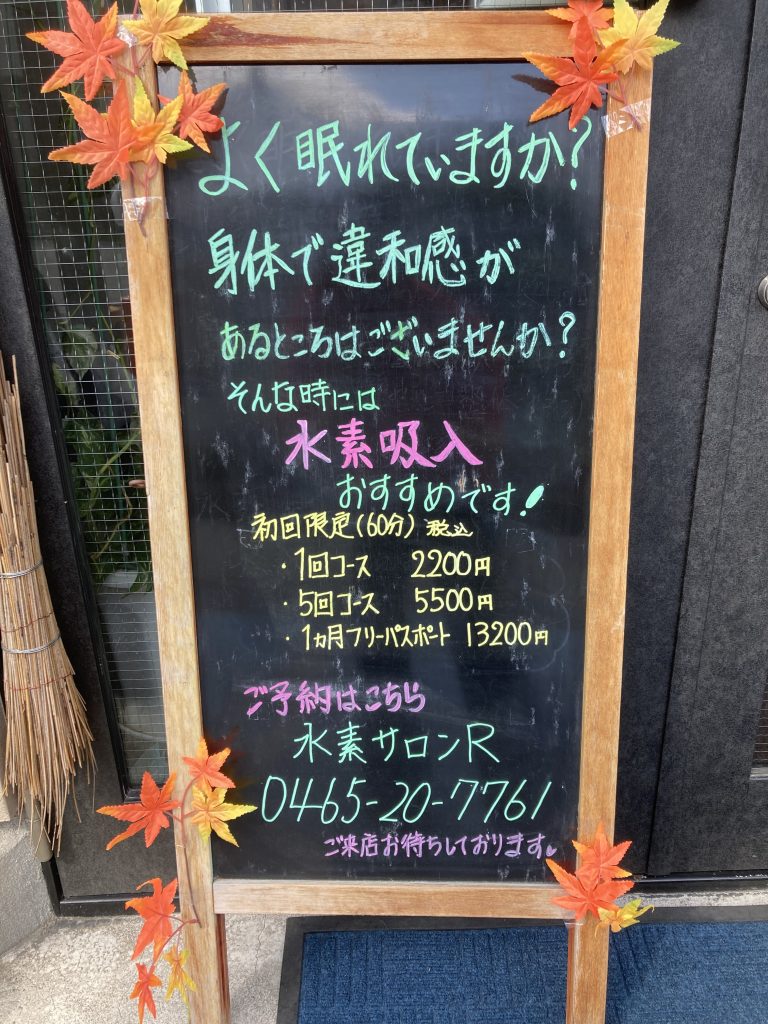 よく眠れていますか?
身体で違和感が
あるところはございませんか?
そんな時には
水素吸入
おすすめです!
初回限定(60分) 税込
・1回コース 2200円
・5回コース 5500円
・1ヵ月フリーパスポート 13200円
ご予約はこちら
水素サロンR
0465-20-7761
ご来店お待ちしております♥